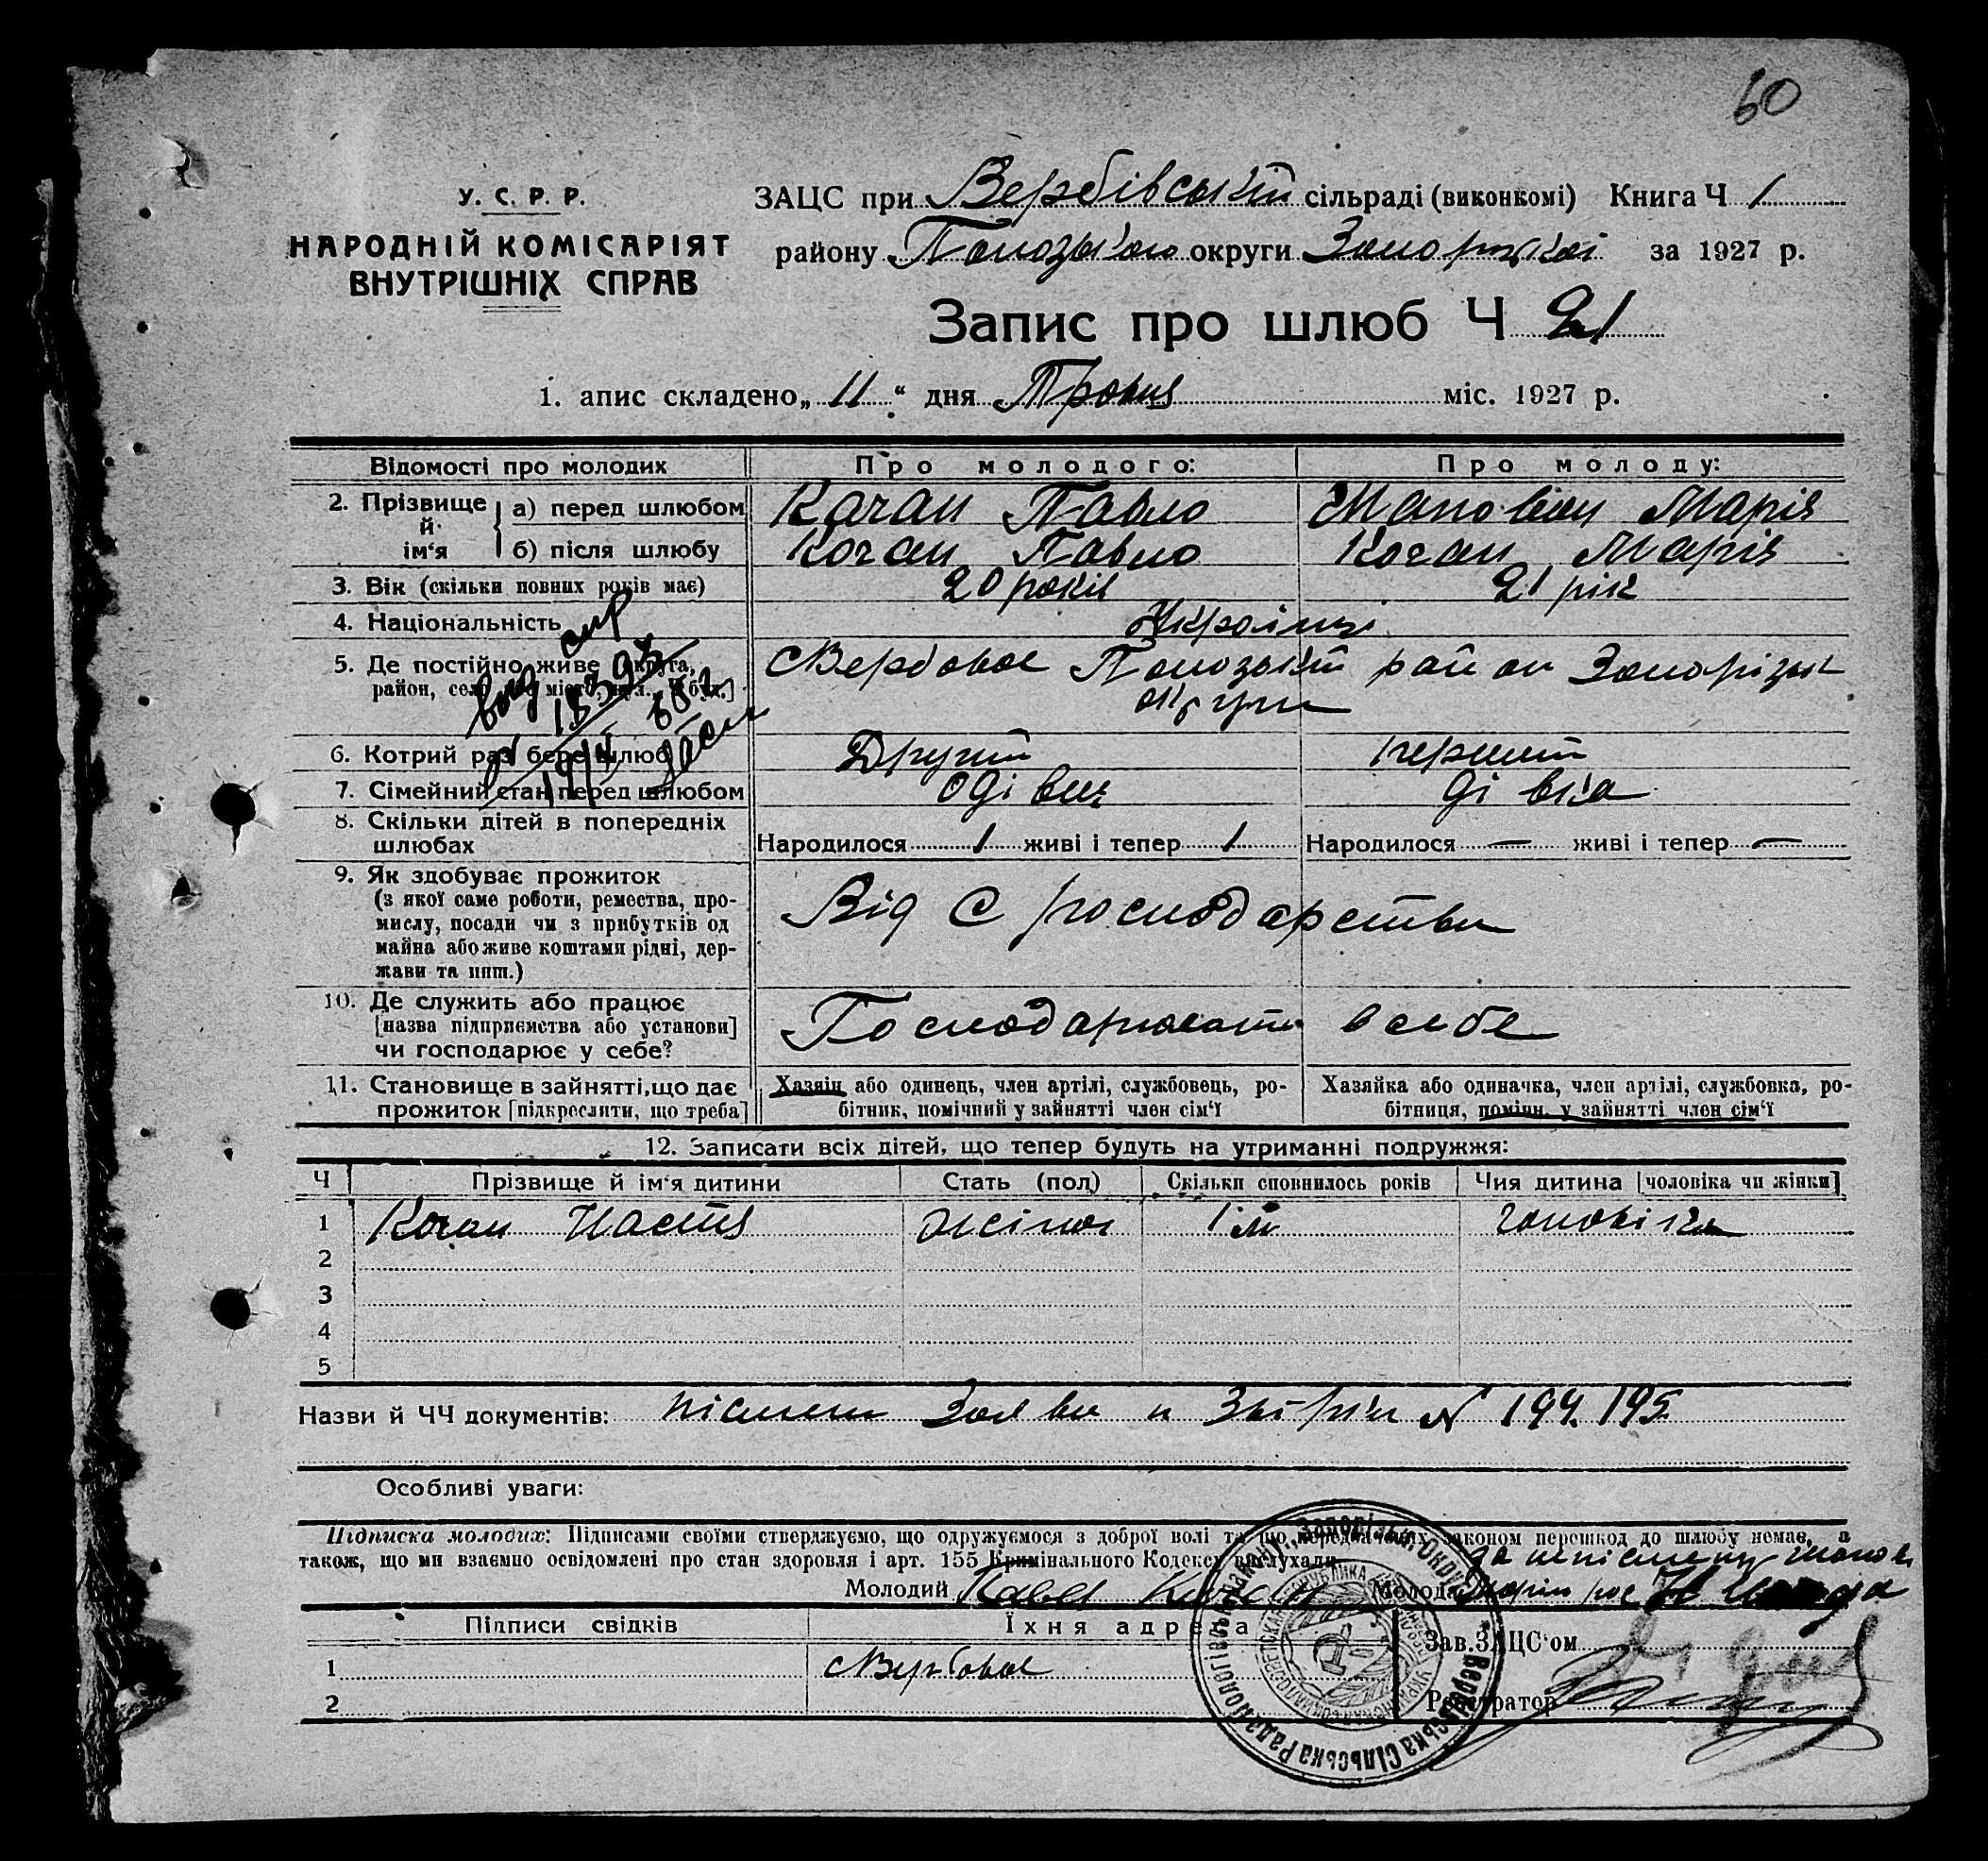 60
У. С. Р. Р.
НАРОДНІЙ КОМІСАРІЯТ
ВНУТРІШНІХ СПРАВ
ЗАЦС при Вербівській сільраді (виконкомі) Книга Ч 1
району Пологського округи Запорізької за 1927 р.
Запис про шлюб Ч 21
1. апис складено „ 11 “ дня Травня міс. 1927 р.
Відомості про молодих
Про молодого:
Про молоду:
2. Прізвище й ім‘я
а) перед шлюбом
Качан Павло
Марія
б) після шлюбу
Качан Павло
Качан Марія
3. Вік (скільки повних років має)
20 років
21 рік
4. Національність
Українці
5. Де постійно живе [округа,
район, село, місто, вул., буд.]
Вербовое Пологський район Запорізьк
округи
6. Котрий раз бере шлюб
Другий
перший
7. Сімейний стан перед шлюбом
одівец
дівка
8. Скільки дітей в попередніх
шлюбах
Народилося 1 живі і тепер 1
Народилося — живі і тепер —
9. Як здобуває прожиток
(з якої саме роботи, ремества, про-
мислу, посади чи з прибутків од
майна або живе коштами рідні, дер-
жави та инш.)
Від С господарства
10. Де служить або працює
[назва підприємства або установи]
чи господарює у себе?
Господарювати в себе
11. Становище в зайнятті, що дає
прожиток [підкреслити, що треба]
Хазяін або одинець, член артілі, службовець, ро-
бітник, помічний у зайнятті член сім‘ї
Хазяйка або одиначка, член артілі, службовка, ро-
бітниця, помічн. у зайнятті член сім‘ї
12. Записати всіх дітей, що тепер будуть на утриманні подружжя:
Ч
Прізвище й ім‘я дитини
Стать (пол)
Скільки сповнилось років
Чия дитина [чоловіка чи жінки]
1 Качан Настя 1 чоловіка
2
3
4
5
Назви й ЧЧ документів: заяви N 194. 195.
Особливі уваги:
Підписка молодих: Підписами своїми стверджуємо, що одружуємося з доброї волі та що передбачених законом перешкод до шлюбу немає, а
також, що ми взаємно освідомлені про стан здоровля і арт. 155 Кримінального Кодексу вислухали
за неписьмену
Молодий Качан
Молода
Підписи свідків
Їхня адреса
Зав. ЗАЦС‘ом
1 Вербовое
Реєстратор
2
Вербівська Сільська Рада